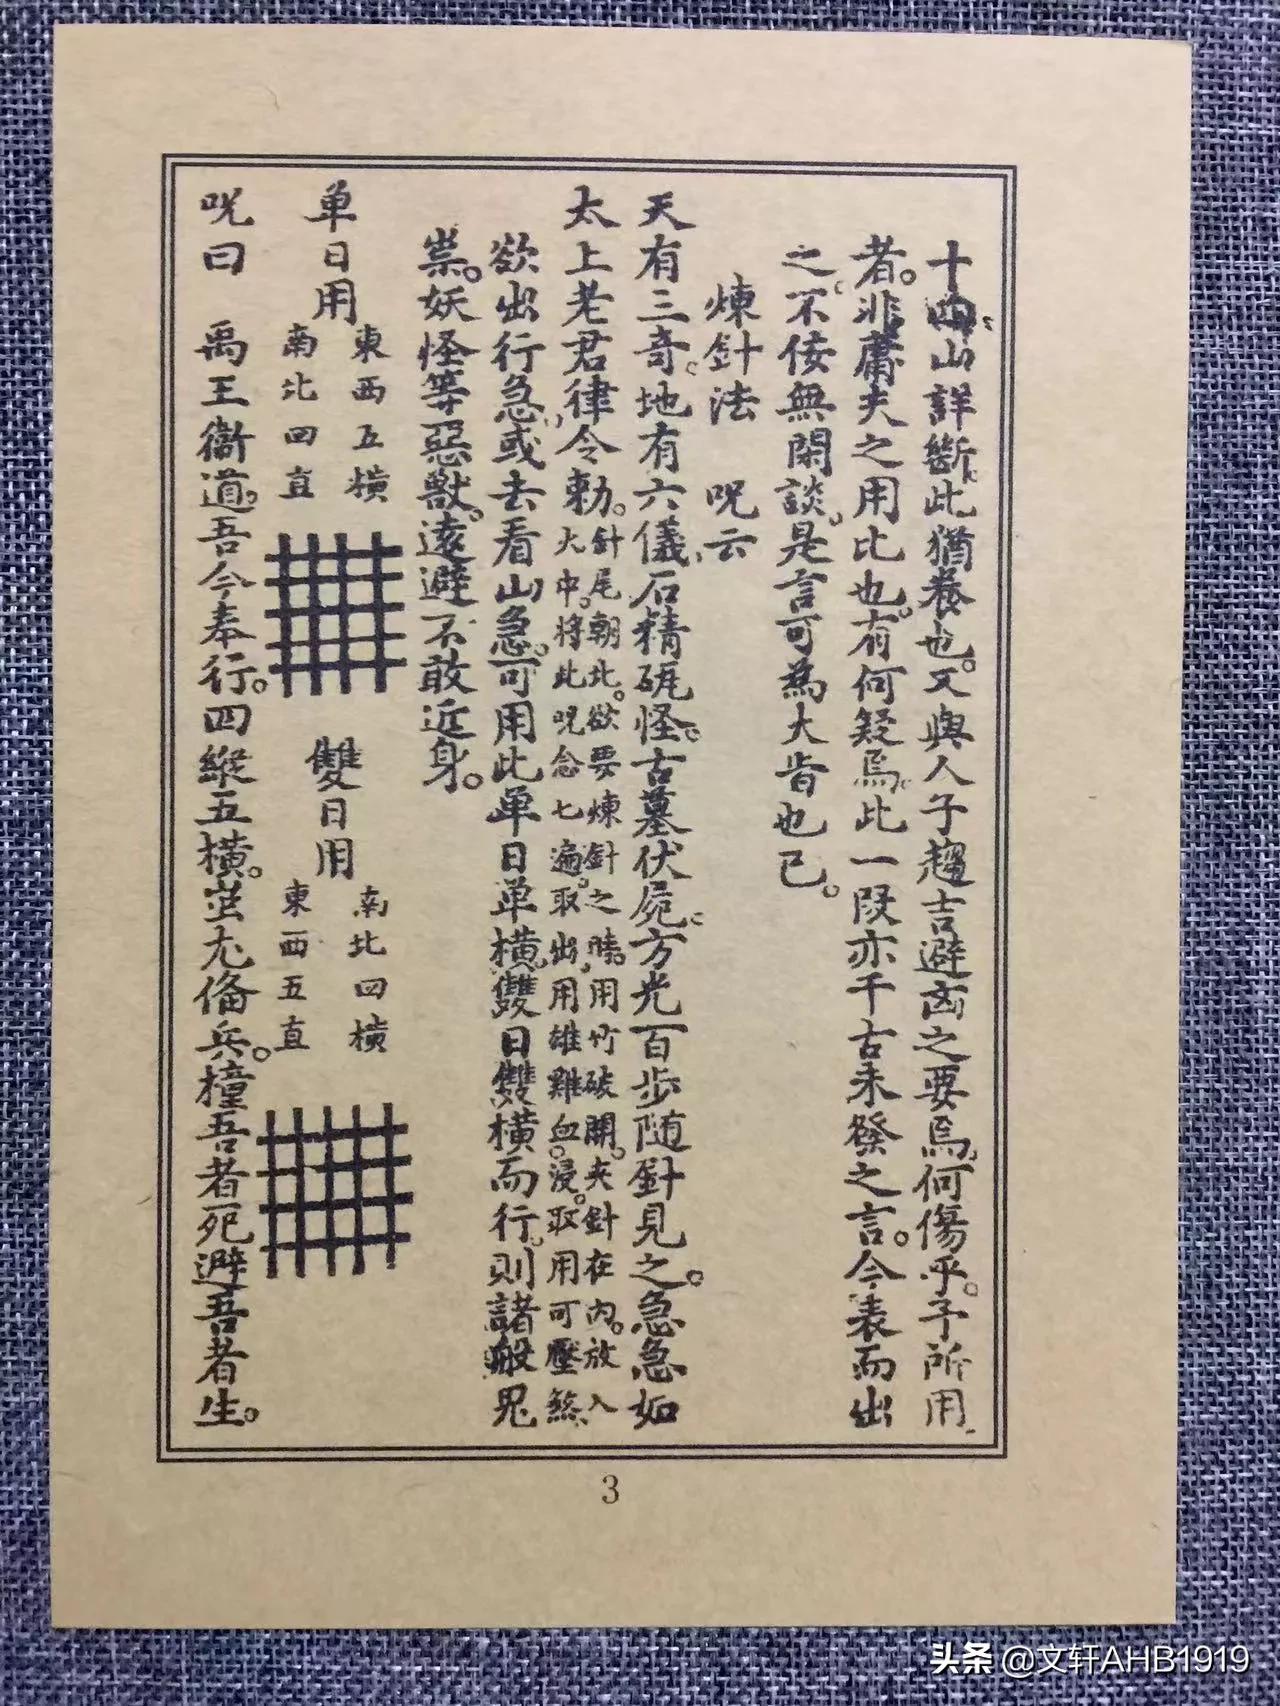 十四山詳斷。此猶卷也。又與人子趨吉避凶之要焉。何傷乎。予所用
者。非庸夫之用比也。有何疑焉。此一段亦千古未發之言。今表而出
之。不佞無閑談。是言可為大旨也已。
煉針法 呪云
天有三奇。地有六儀。石精砒怪。古墓伏屍。方光百步随針見之。急急如
太上老君律令勅。
針尾朝北。欲要煉針之時。用竹破開。夹針在內。放入
大中。將此呪念七遍。取出用雄雞血。浸。取用可壓煞。
欲出行急。或去看山急。可用此单日单橫。雙日雙橫而行。則諸般鬼
祟。妖怪等惡獸。遠避不敢近身。
单日用
東西五橫
南北四直
雙日用
南北四橫
東西五直
呪曰 禹王衞道。吾今奉行。四縱五橫。蚩尤俻兵。撞吾者死避吾者生。
3
头条 @文轩AHB1919